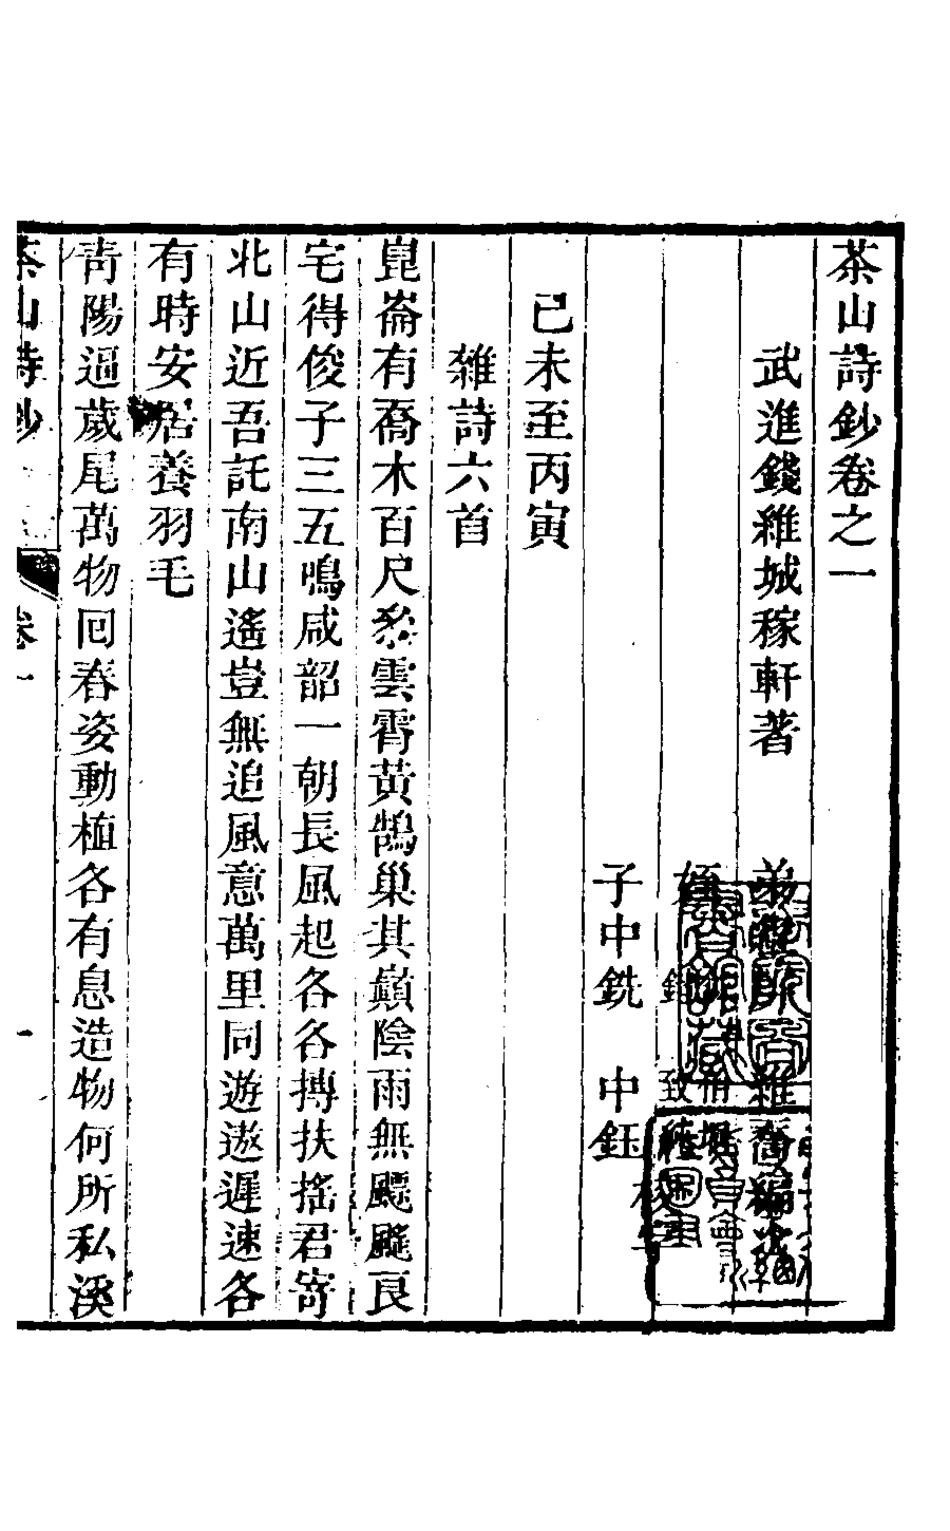 茶山詩鈔卷之一
武進錢維城稼軒著
弟維喬編次
子中銑 中鈺
己未至丙寅
雜詩六首
崑崙有喬木百尺參雲霄黃鵠巢其巔陰雨無飄颻良
宅得俊子三五鳴咸韶一朝長風起各各摶扶搖君寄
北山近吾託南山遙豈無追風意萬里同遊遨遲速各
有時安居養羽毛
青陽逼歲尾萬物回春姿動植各有息造物何所私溪
茶山詩鈔 卷一 一